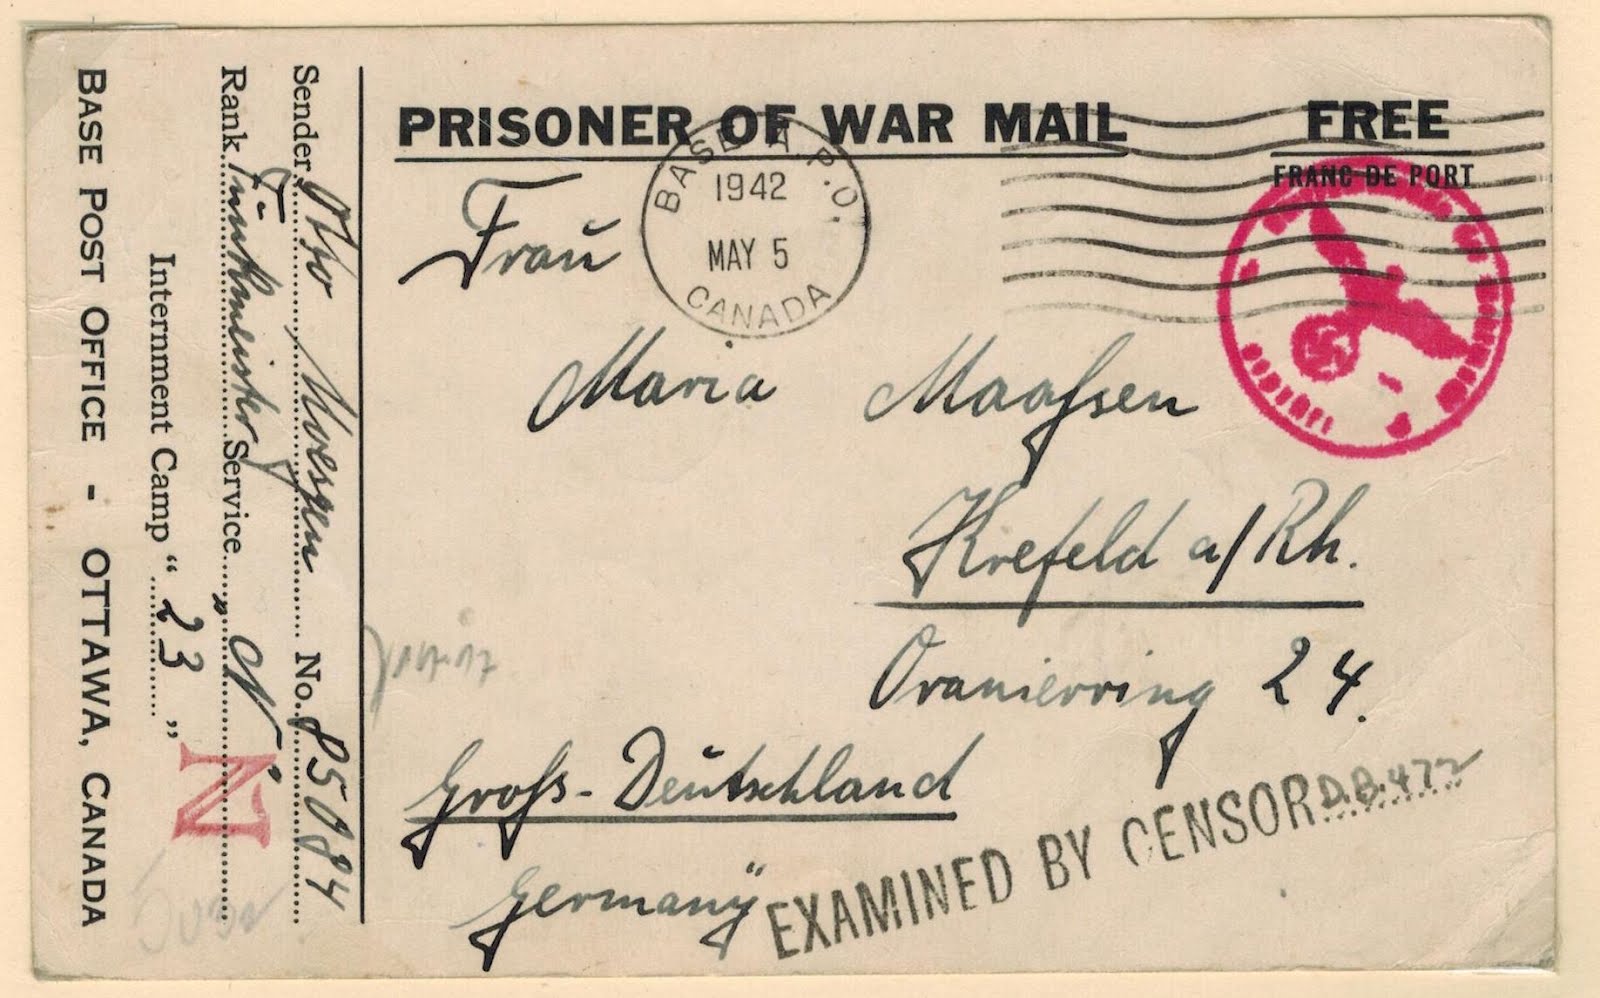 PRISONER OF WAR MAIL
FREE
FRANC DE PORT
BASE A.P.O.
1942
MAY 5
CANADA
Frau
Maria Maaßsen
Krefeld a/Rh.
Oranierring 24.
Groß-Deutschland
Germany"
EXAMINED BY CENSOR D.B.472
Sender Otto No. 85084
Rank Funkmeister Service „N"
Internment Camp "23"
N
BASE POST OFFICE - OTTAWA, CANADA